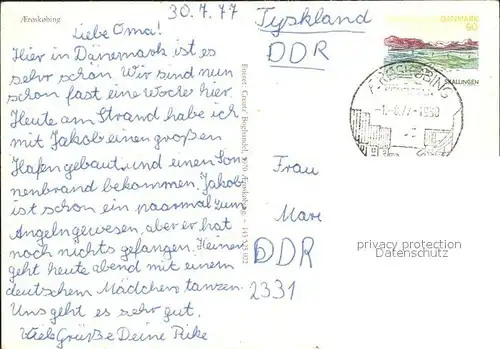 Ærøskøbing
30.7.77
Liebe Oma!
Hier in Dänemark ist es
sehr schön. Wir sind nun
schon fast eine Woche hier.
Heute am Strand habe ich
mit Jakob einen großen
Hafen gebaut und einen Son-
nenbrand bekommen. Jakob
ist schon ein paarmal zum
Angeln gewesen, aber er hat
noch nichts gefangen. Heiner
geht heute abend mit einem
deutschem Mädchen tanzen.
Uns geht es sehr gut.
Viele Grüße Deine Rike
Eneret: Creutz' Boghandel, 5970 Ærøskøbing - 143 525 022
Tyskland
DDR
DANMARK
60
SKALLINGEN
ÆRØSKØBING
-1.-8.77-1930
Frau
Mare
DDR
2331
privacy protection
Datenschutz